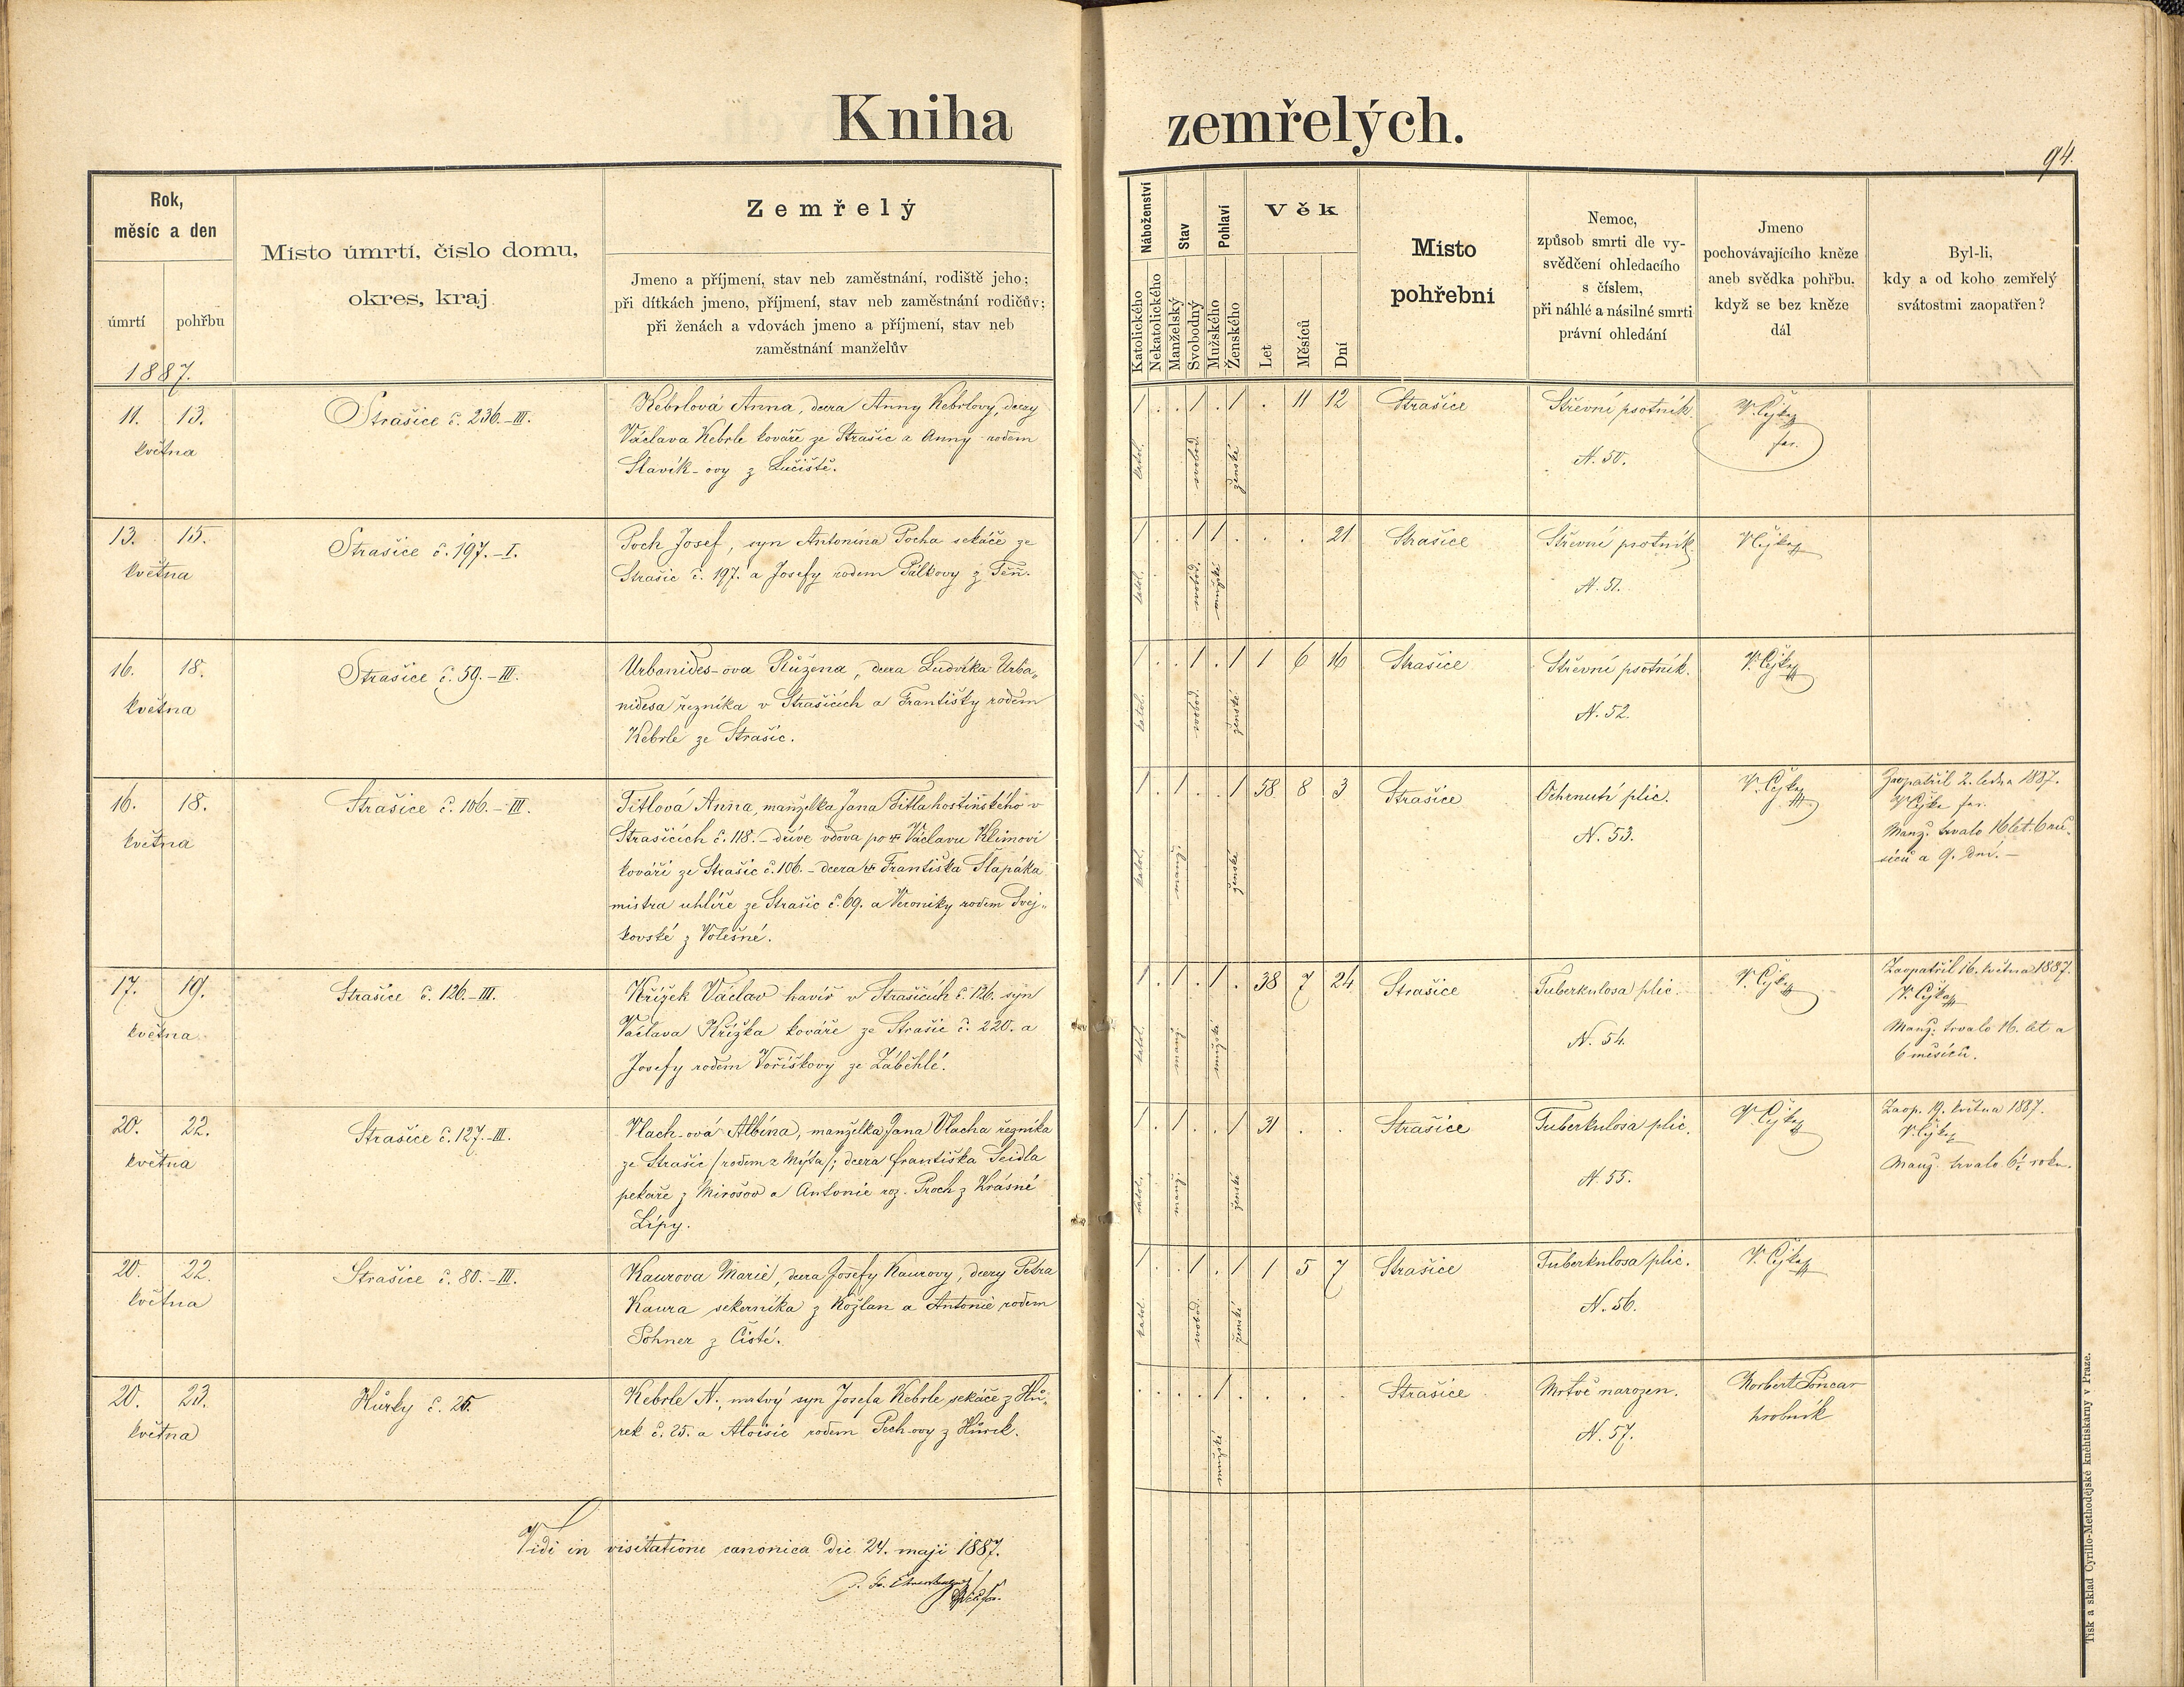 Kniha zemřelých.
94.
Rok,
měsíc a den
úmrtí pohřbu
1887.
Místo úmrtí, číslo domu,
okres, kraj
Zemřelý
Jmeno a příjmení, stav neb zaměstnání, rodiště jeho;
při dítkách jmeno, příjmení, stav neb zaměstnání rodičův;
při ženách a vdovách jmeno a příjmení, stav neb
zaměstnání manželův
Náboženství
Katolického
Nekatolického
Stav
Manželský
Svobodný
Pohlaví
Mužského
Ženského
Věk
Let
Měsíců
Dní
Místo
pohřební
Nemoc,
způsob smrti dle vy-
svědčení ohledacího
s číslem,
při náhlé a násilné smrti
právní ohledání
Jmeno
pochovávajícího kněze
aneb svědka pohřbu,
když se bez kněze
dál
Byl-li,
kdy a od koho zemřelý
svátostmi zaopatřen?
11. 13.
května
Strašice č. 236.-III.
Kebrlová Anna, dcera Anny Kebrlovy, dcery
Václava Kebrle kováře ze Strašic a Anny rodem
Slavík-ovy z
1 . . 1 . 1 . 11 12
katol. svobod. ženské
Strašice
Střevní psotník.
N. 50.
V. Čejka
far.
13. 15.
května
Strašice č. 197.-I.
Poch Josef, syn Antonína Pocha sekáče ze
Strašic č. 197. a Josefy rodem Pálkovy z Těň.
1 . . 1 1 . . . 21
katol. svobod. mužské
Strašice
Střevní psotník.
N. 51.
V. Čejka
16. 18.
května
Strašice č. 59.-III.
Urbanides-ova Růžena, dcera Ludvíka Urba„
nidesa řezníka v Strašicích a Františky rodem
Kebrle ze Strašic.
1 . . 1 . 1 1 6 16
katol. svobod. ženské
Strašice
Střevní psotník.
N. 52.
V. Čejka
16. 18.
května
Strašice č. 106.-III.
Titlová Anna, manželka Jana Titla hostinského v
Strašicích č. 118.- dříve vdova po Václavu Klimovi
kováři ze Strašic č. 106. - dcera Františka Šlapáka
mistra uhlíře ze Strašic č. 69. a Veroniky rodem Svej„
kovské z Volešné.
1 . 1 . . 1 58 8 3
katol. manž. ženské
Strašice
Ochrnutí plic.
N. 53.
V. Čejka
Zaopatřil 2. ledna 1887.
V. Čejka far.
Manž. trvalo 16 let. 6 mě„
síců a 9. dní. -
17. 19.
května
Strašice č. 126.-III.
Křížek Václav havíř v Strašicích č. 126. syn
Václava Křížka kováře ze Strašic č. 220. a
Josefy rodem Voříškovy ze Záběhlé.
1 . 1 . 1 . 38 7 24
katol. manž. mužské
Strašice
Tuberkulosa plic.
N. 54.
V. Čejka
Zaopatřil 16. května 1887.
V. Čejka
Manž. trvalo 16. let a
6 měsíců.
20. 22.
května
Strašice č. 127.-III.
Vlach-ová Albína, manželka Jana Vlacha řezníka
ze Strašic / rodem z Mýta /; dcera Františka Seidla
pekaře z Mirošov a Antonie roz. Proch z Krásné
Lípy.
1 . 1 . . 1 31 . .
katol. manž. ženské
Strašice
Tuberkulosa plic.
N. 55.
V. Čejka
Zaop. 19. května 1887.
V. Čejka
Manž. trvalo 6½ roku.
20. 22.
května
Strašice č. 80.-III.
Kaurova Marie, dcera Josefy Kaurovy, dcery Petra
Kaura sekerníka z Kožlan a Antonie rodem
Pohner z Čisté.
1 . . 1 . 1 1 5 7
katol. svobod. ženské
Strašice
Tuberkulosa plic.
N. 56.
V. Čejka
20. 23.
května
Hůrky č. 25.
Kebrle N., mrtvý syn Josefa Kebrle sekáče z Hů„
rek č. 25. a Aloisie rodem Pech-ovy z Hůrek.
. . . . 1 . . . .
mužské
Strašice
Mrtvě narozen.
N. 57.
Norbert Poncar
hrobník
Vidi in visitatione canonica die 24. maji 1887.
Tisk a sklad Cyrillo-Methodějské kněhtiskárny v Praze.